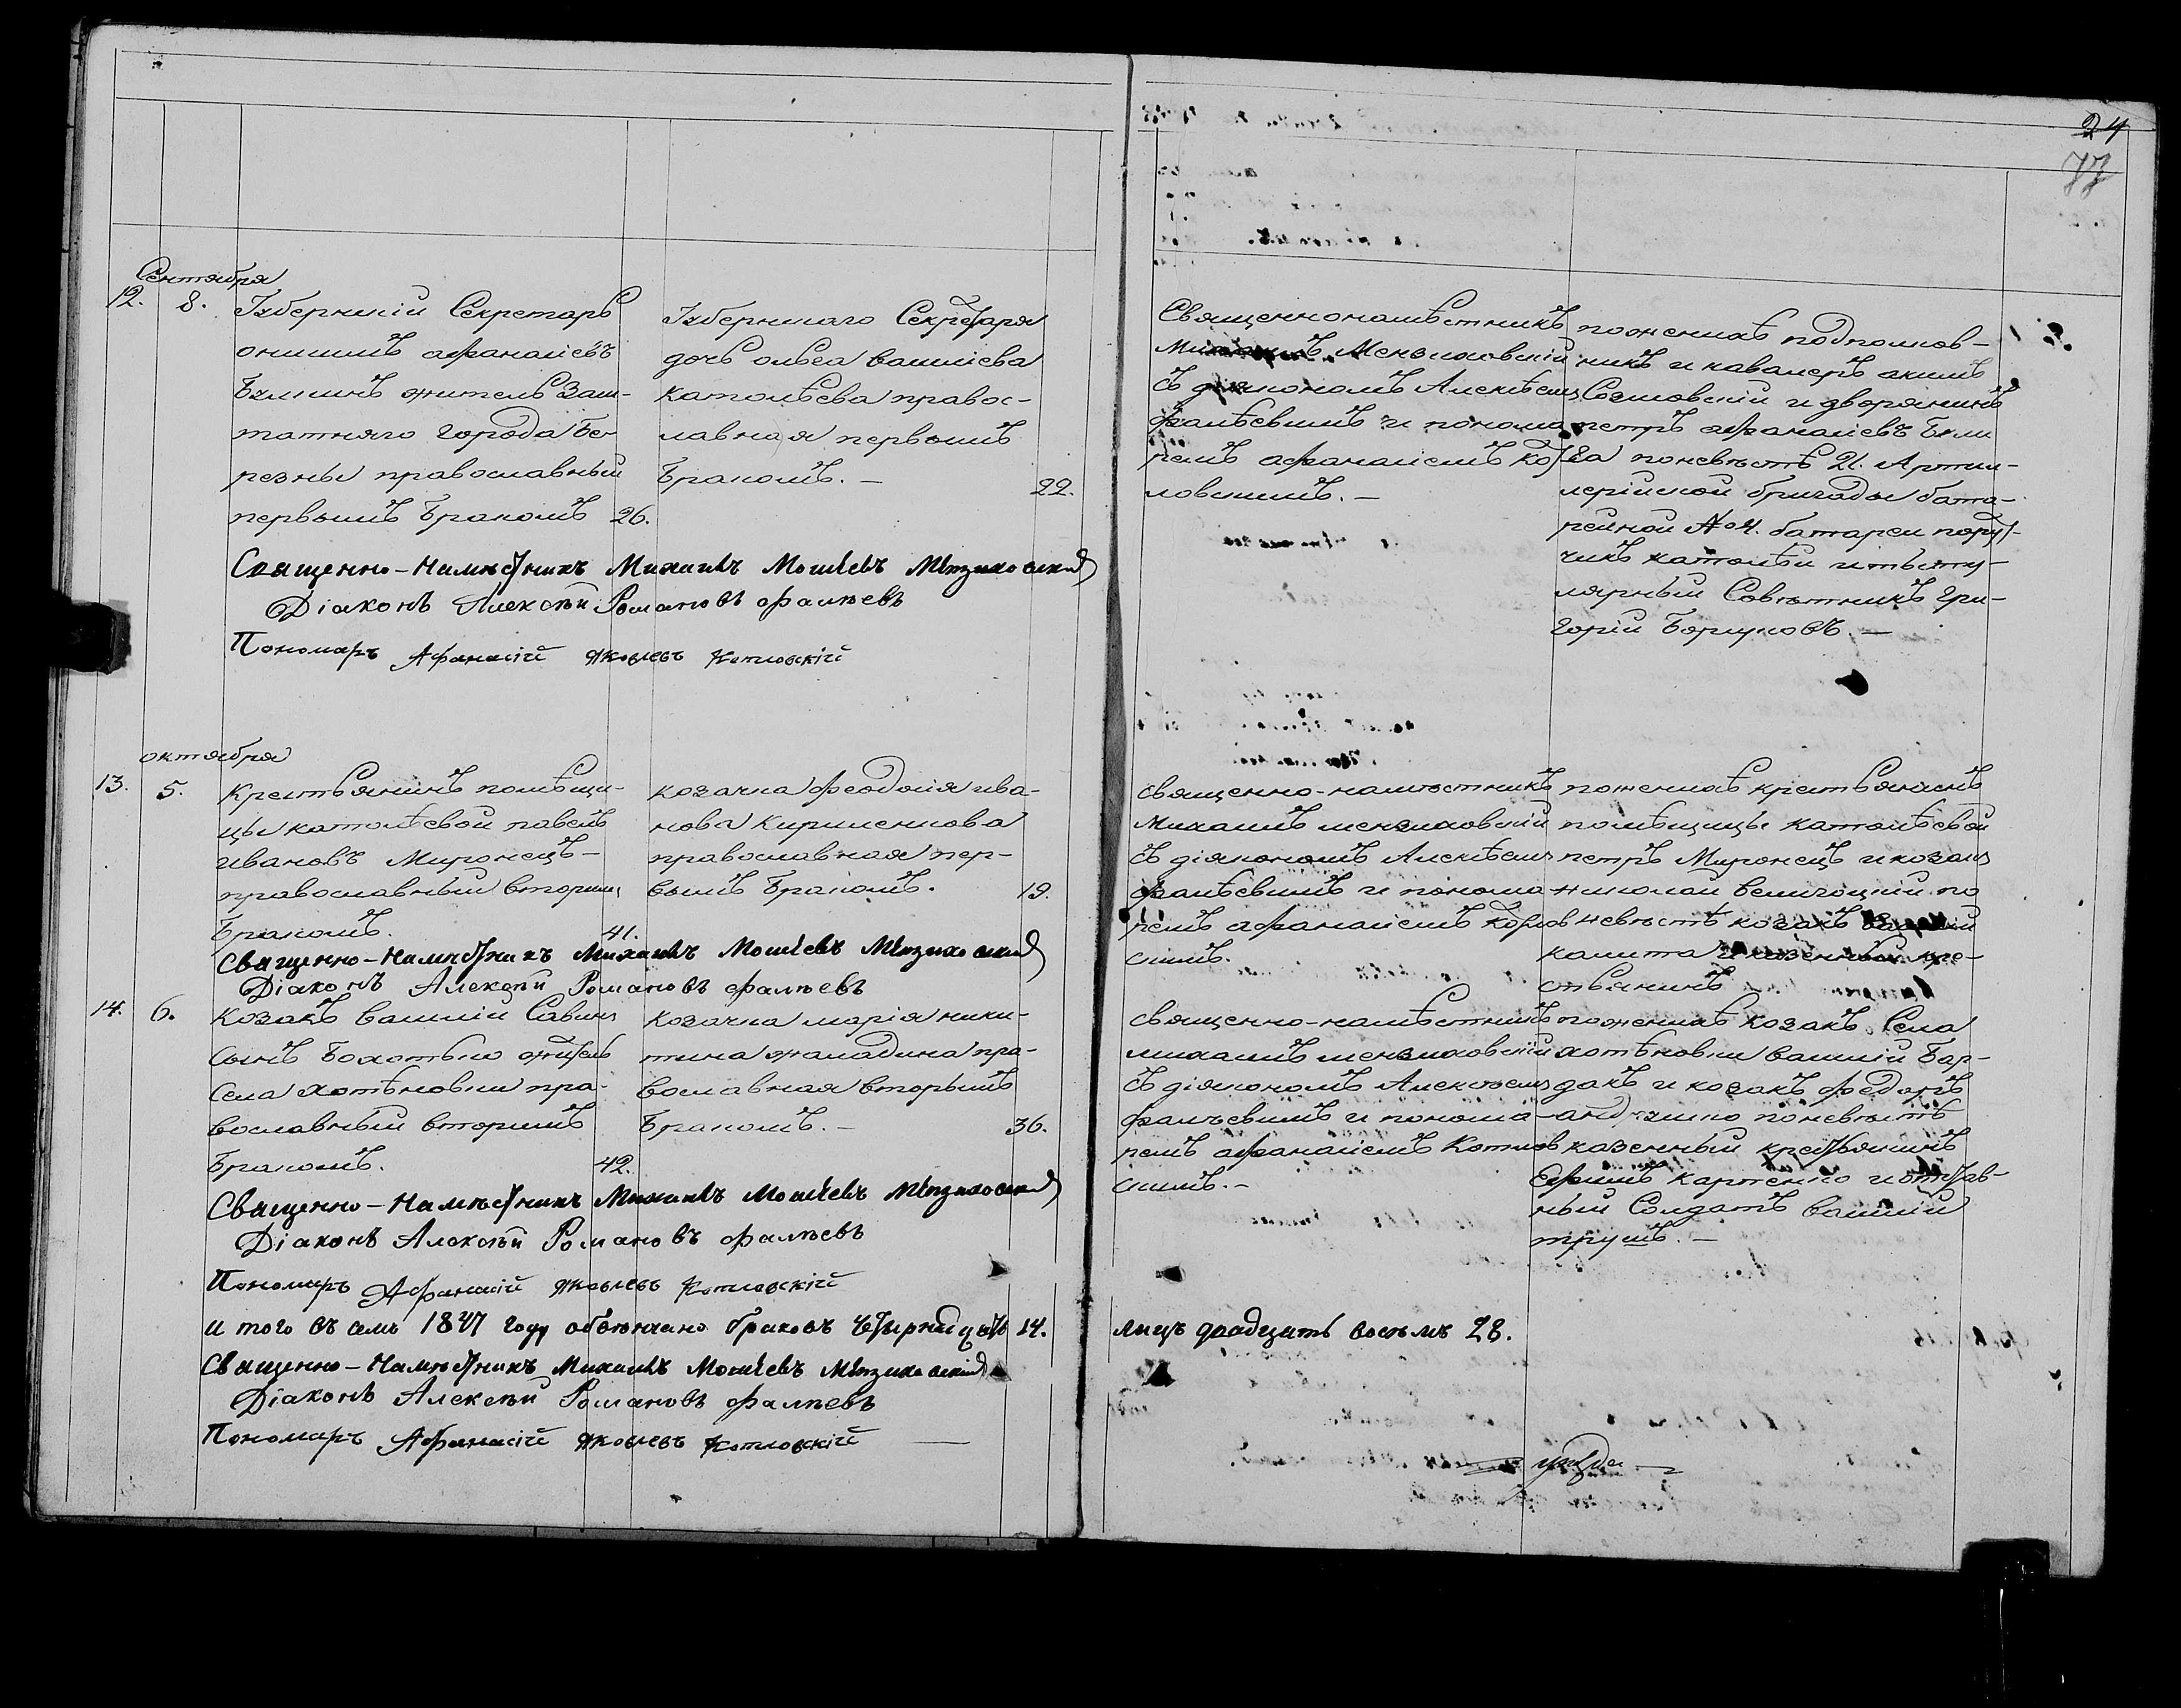 24
77
Сентября
12. 8.
Губернскій Секретарь
онисимъ афанасіевъ
Билинъ житель Заш-
татнаго города Бе-
резны православный
первымъ Бракомъ 26.
Губернскаго Секретаря
дочь ольга василіева
католѣева правос-
лавная первымъ
Бракомъ. — 22.
Священнонамѣстникъ
Михаилъ Мензиховскій
съ діякономъ Алексѣемъ
фалѣевымъ и понома
ремъ афанасіемъ Кот
ловскимъ. —
по женихѣ подполков-
никъ и кавалеръ акимъ
Созиовскій и дворянинъ
петръ афанасіевъ Били
на по невѣстѣ 21. Артил-
лерійской бригады бата-
рейной № 4. батареи пору-
чикъ католѣи и титу-
лярный Совѣтникъ гри-
горій Боруновъ. —
Священно-намѣстникъ Михаилъ Моисіевъ Мензиховскій
Діаконъ Алексѣй Романовъ фалѣевъ
Пономарь Афанасій Яковлевъ Котловскій
октября
13. 5.
Крестьянинъ помѣщи-
цы католѣевой павелъ
ивановъ Миронецъ —
православный вторымъ
Бракомъ. 41.
козачка феодосія ива-
нова Кириленкова
православная пер-
вымъ Бракомъ. 19.
священно-намѣстникъ
михаилъ мензиховскій
съ діякономъ Алексѣемъ
фалѣевымъ и понома
ремъ афанасіемъ котлов
скимъ.
по женихѣ крестьянинъ
помѣщицы католѣевой
петръ Миронецъ и козакъ
николай величцкій по
невѣстѣ козакъ василій
калита и казенный кре-
стьянинъ
Священно-намѣстникъ Михаилъ Моисіевъ Мензиховскій
Діаконъ Алексѣй Романовъ фалѣевъ
14. 6.
Козакъ василій Савинъ
сынъ Бохотько житель
Села хотѣновки пра-
вославный вторымъ
Бракомъ. 42.
козачка марія ники-
тина жаладина пра-
вославная вторымъ
Бракомъ. — 36.
священно-намѣстникъ
михаилъ мензиховскій
съ діякономъ Алексѣемъ
фалѣевымъ и понома-
ремъ афанасіемъ Котлов
скимъ. —
по женихѣ козакъ Села
хотѣновки василій Бар-
дакъ и козакъ федоръ
по невѣстѣ
казенный крестьянинъ
Ефимъ карпенко и отстав-
ный Солдатъ василій
трушъ. —
Священно-намѣстникъ Михаилъ Моисіевъ Мензиховскій
Діаконъ Алексѣй Романовъ фалѣевъ
Пономарь Афанасій Яковлевъ Котловскій
и того въ семъ 1847 году обвѣнчано браковъ четырнадцать 14.
лицъ двадцать восѣмъ 28.
Священно-намѣстникъ Михаилъ Моисіевъ Мензиховскій
Діаконъ Алексѣй Романовъ фалѣевъ
Пономарь Афанасій Яковлевъ Котловскій —